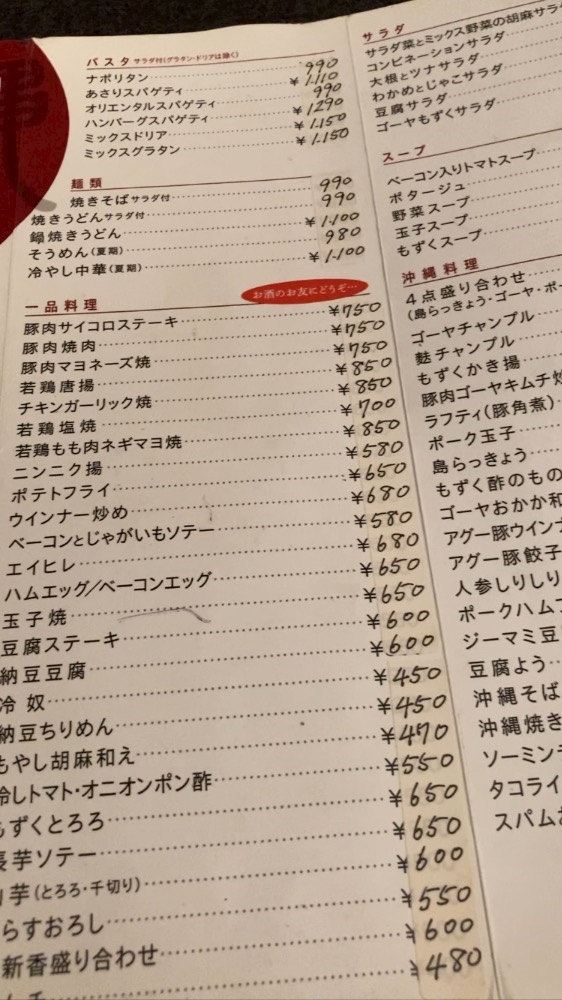 パスタ サラダ付(グラタン・ドリアは除く)
ナポリタン 990
あさりスパゲティ ¥1,110
オリエンタルスパゲティ 990
ハンバーグスパゲティ ¥1,290
ミックスドリア ¥1,150
ミックスグラタン ¥1,150
麺類
焼きそばサラダ付 990
焼きうどんサラダ付 990
鍋焼きうどん ¥1,100
そうめん(夏期) 980
冷やし中華(夏期) ¥1,100
一品料理 お酒のお友にどうぞ…
豚肉サイコロステーキ ¥750
豚肉焼肉 ¥750
豚肉マヨネーズ焼 ¥750
若鶏唐揚 ¥850
チキンガーリック焼 ¥850
若鶏塩焼 ¥700
若鶏もも肉ネギマヨ焼 ¥850
ニンニク揚 ¥580
ポテトフライ ¥650
ウインナー炒め ¥680
ベーコンとじゃがいもソテー ¥580
エイヒレ ¥680
ハムエッグ/ベーコンエッグ ¥650
玉子焼 ¥650
豆腐ステーキ ¥600
納豆豆腐 ¥600
冷奴 ¥450
納豆ちりめん ¥450
もやし胡麻和え ¥470
冷しトマト・オニオンポン酢 ¥550
もずくとろろ ¥650
長芋ソテー ¥650
芋(とろろ・千切り) ¥600
らすおろし ¥550
新香盛り合わせ ¥600
¥480
サラダ
サラダ菜とミックス野菜の胡麻サラ
コンビネーションサラダ
大根とツナサラダ
わかめとじゃこサラダ
豆腐サラダ
ゴーヤもずくサラダ
スープ
ベーコン入りトマトスープ
ポタージュ
野菜スープ
玉子スープ
もずくスープ
沖縄料理
4点盛り合わせ
(島らっきょう・ゴーヤ・ポー
ゴーヤチャンプル
麩チャンプル
もずくかき揚
豚肉ゴーヤキムチ
ラフティ(豚角煮)
ポーク玉子
島らっきょう
もずく酢のもの
ゴーヤおかか和
アグー豚ウインナ
アグー豚餃子
人参しりしり
ポークハム
ジーマミ豆
豆腐よう
沖縄そば
沖縄焼き
ソーミン
タコライ
スパムお